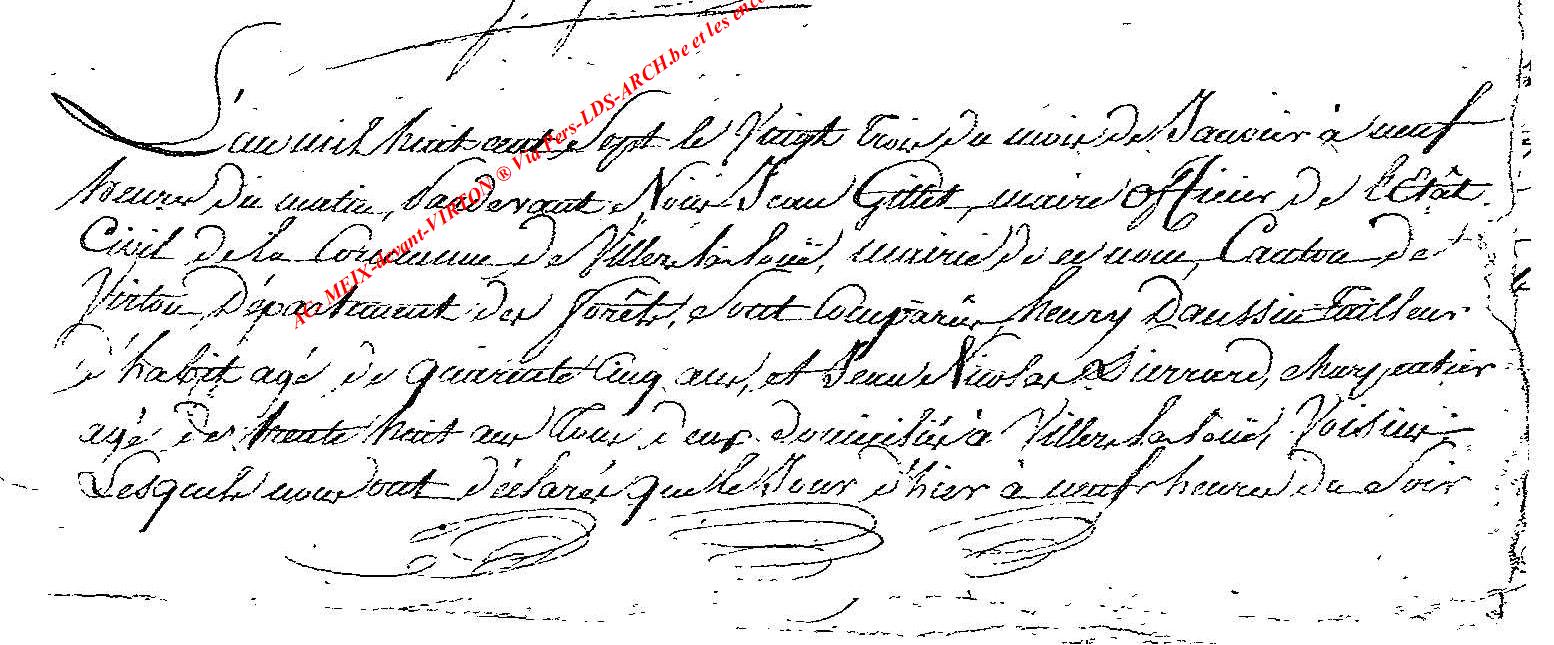 L'an mil huit cent Sept le Vingt Trois du mois de Janvier à neuf
heures du matin, Pardevant Nous Jean Gillet, maire officier de l'Etât
Civil de la Commune de Villers la loüe, mairie de ce nom, Canton de
Virton, Département des forêts, Sont Comparûs henry Daussin Tailleur
d'habit agé de quarante Cinq ans, et Jean Nicolas Pierrard, charpentier
agé de trente huit ans Tous deux domiciliés à Villers la loüe, Voisins
Lesquels nous ont déclarés que le Jour d'hier à neuf heures du Soir
AG. MEIX-devant-VIRTON ® Via Pers-LDS-ARCH.be et les